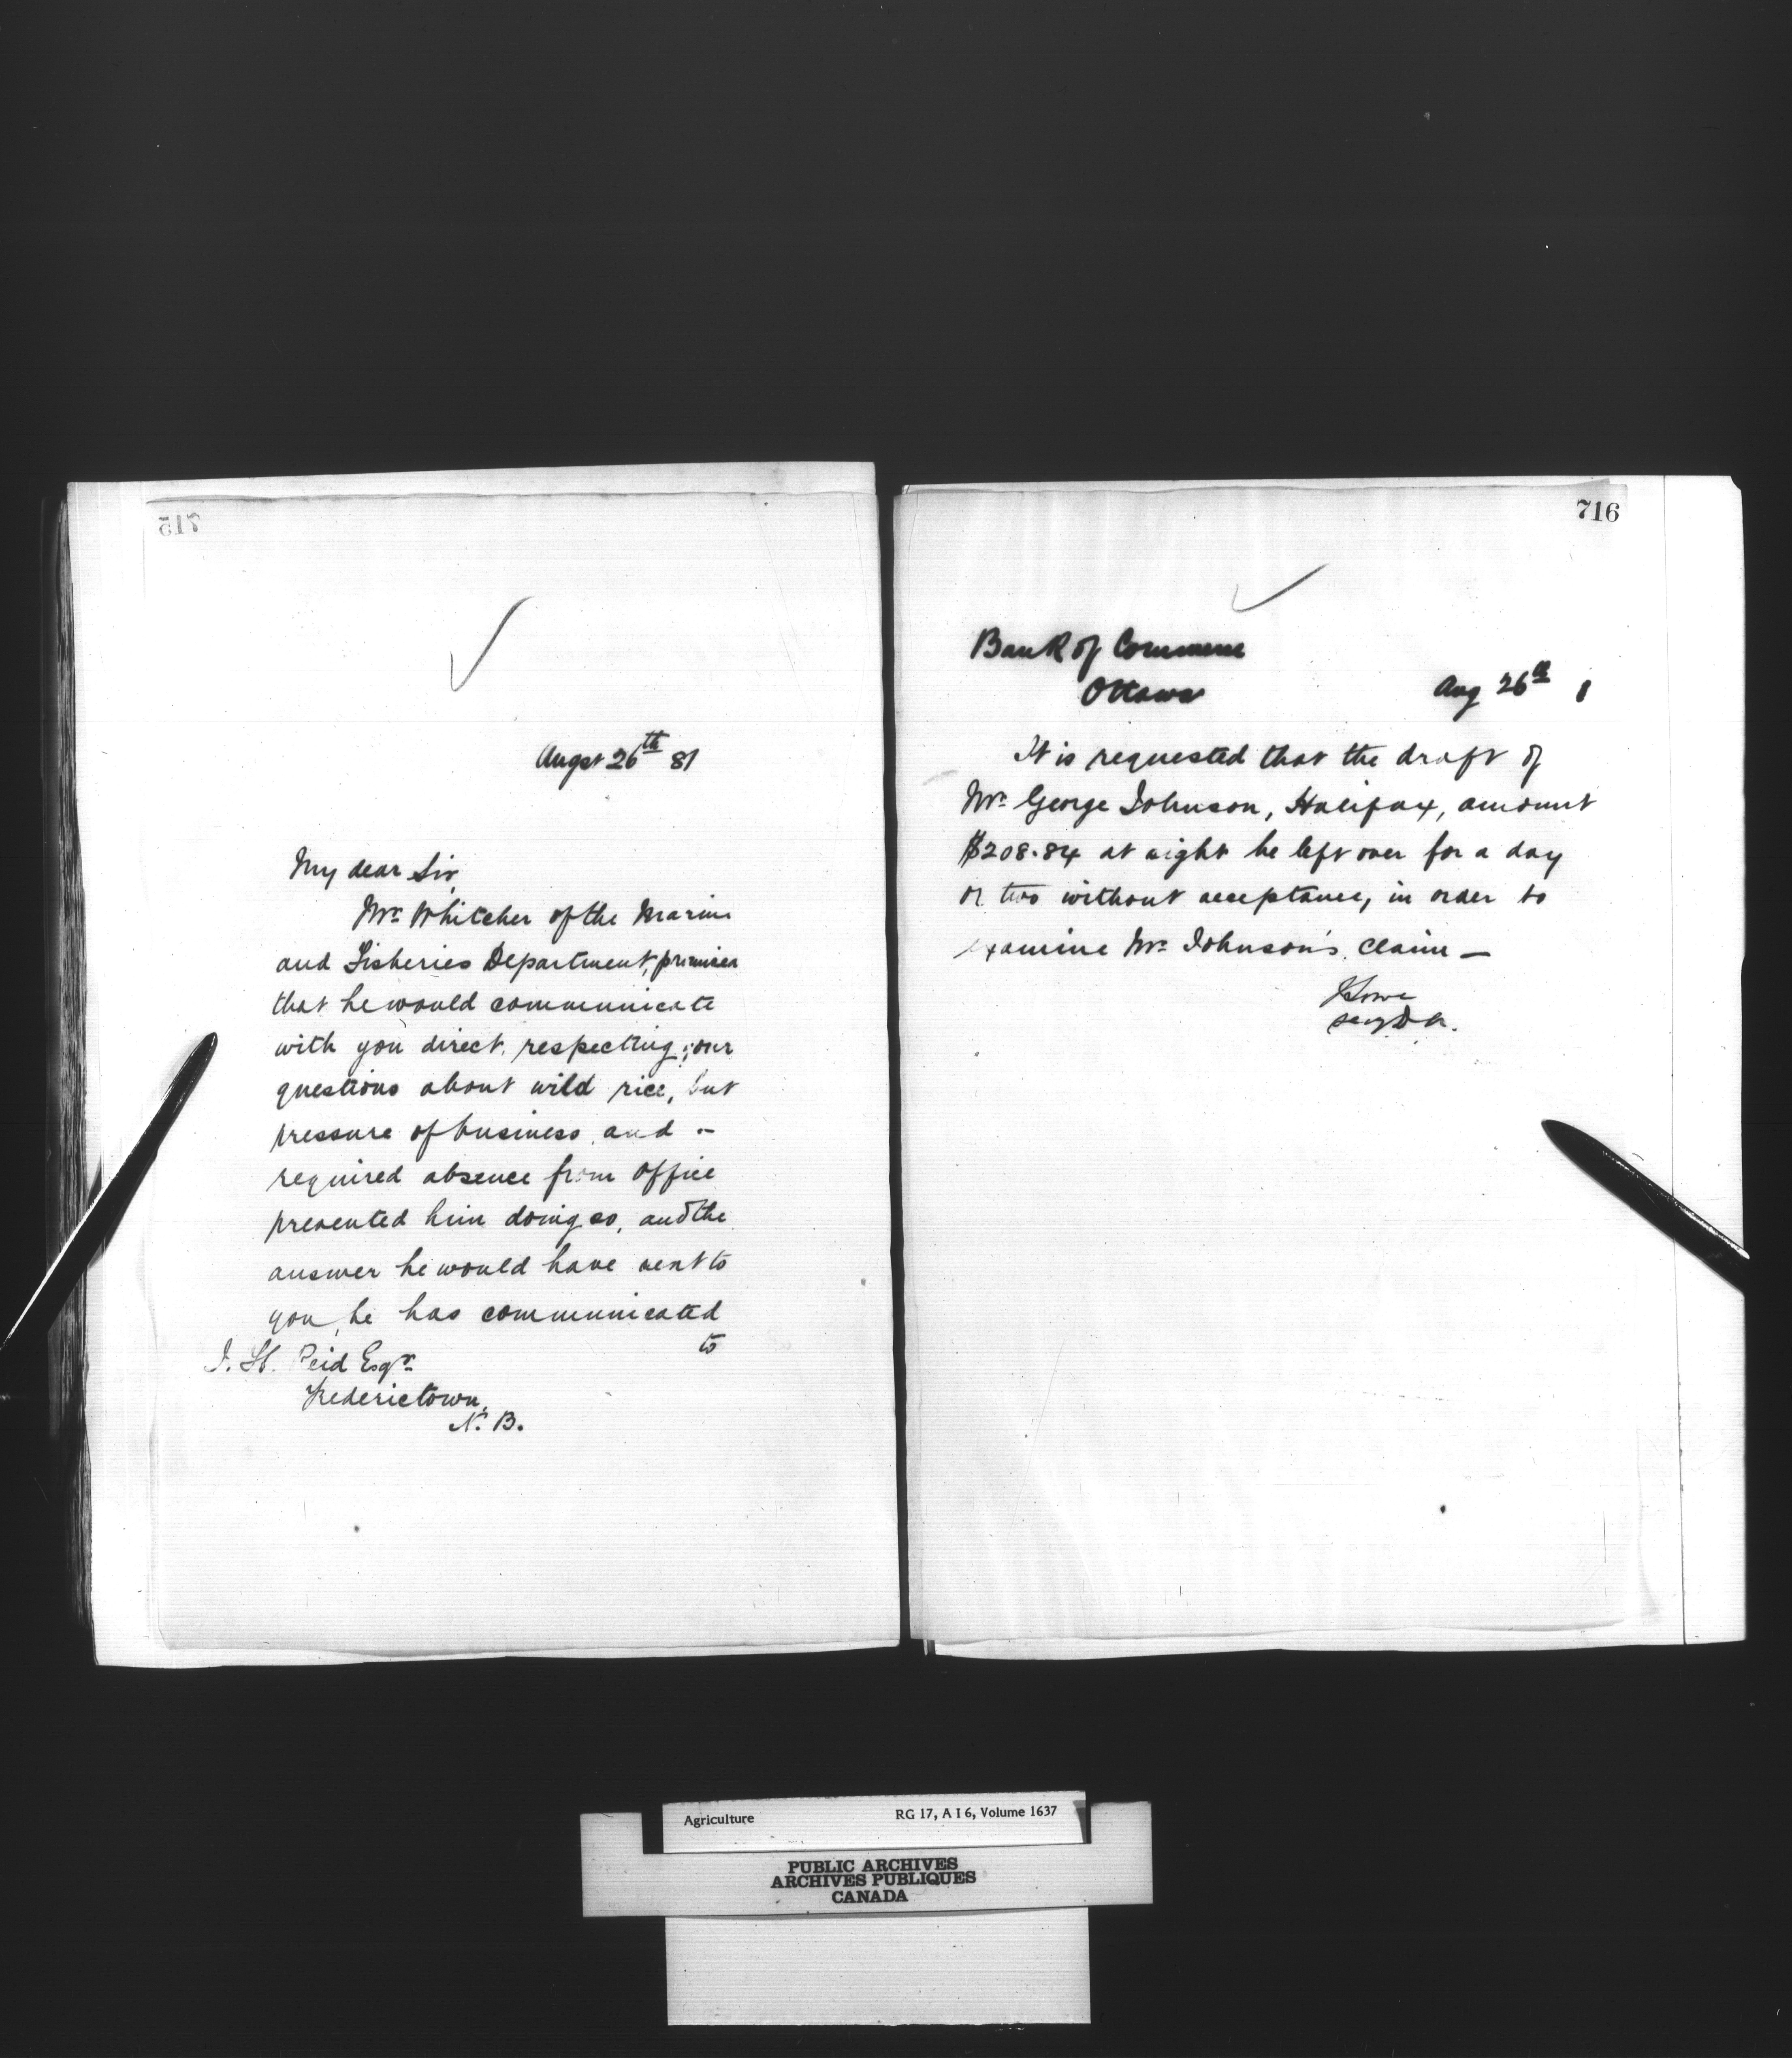 715
Augst 26th 81
My dear Sir,
Mr Whitcher of the Marine
and Fisheries Department, promised
that he would communicate
with you direct, respecting your
questions about wild rice, but
pressure of business and –
required absence from office
prevented him doing so, and the
answer he would have sent to
you, he has communicated
to
J. H. Reid Esqr
Fredericktown,
N. B.
716
Bank of Commerce
Ottawa
Aug 26th 1
It is requested that the draft of
Mr George Johnson, Halifax, amount
$208.84 at sight be left over for a day
or two without acceptance, in order to
examine Mr Johnson's claim —
J Lowe
Secy D A.
Agriculture RG 17, A I 6, Volume 1637
PUBLIC ARCHIVES
ARCHIVES PUBLIQUES
CANADA